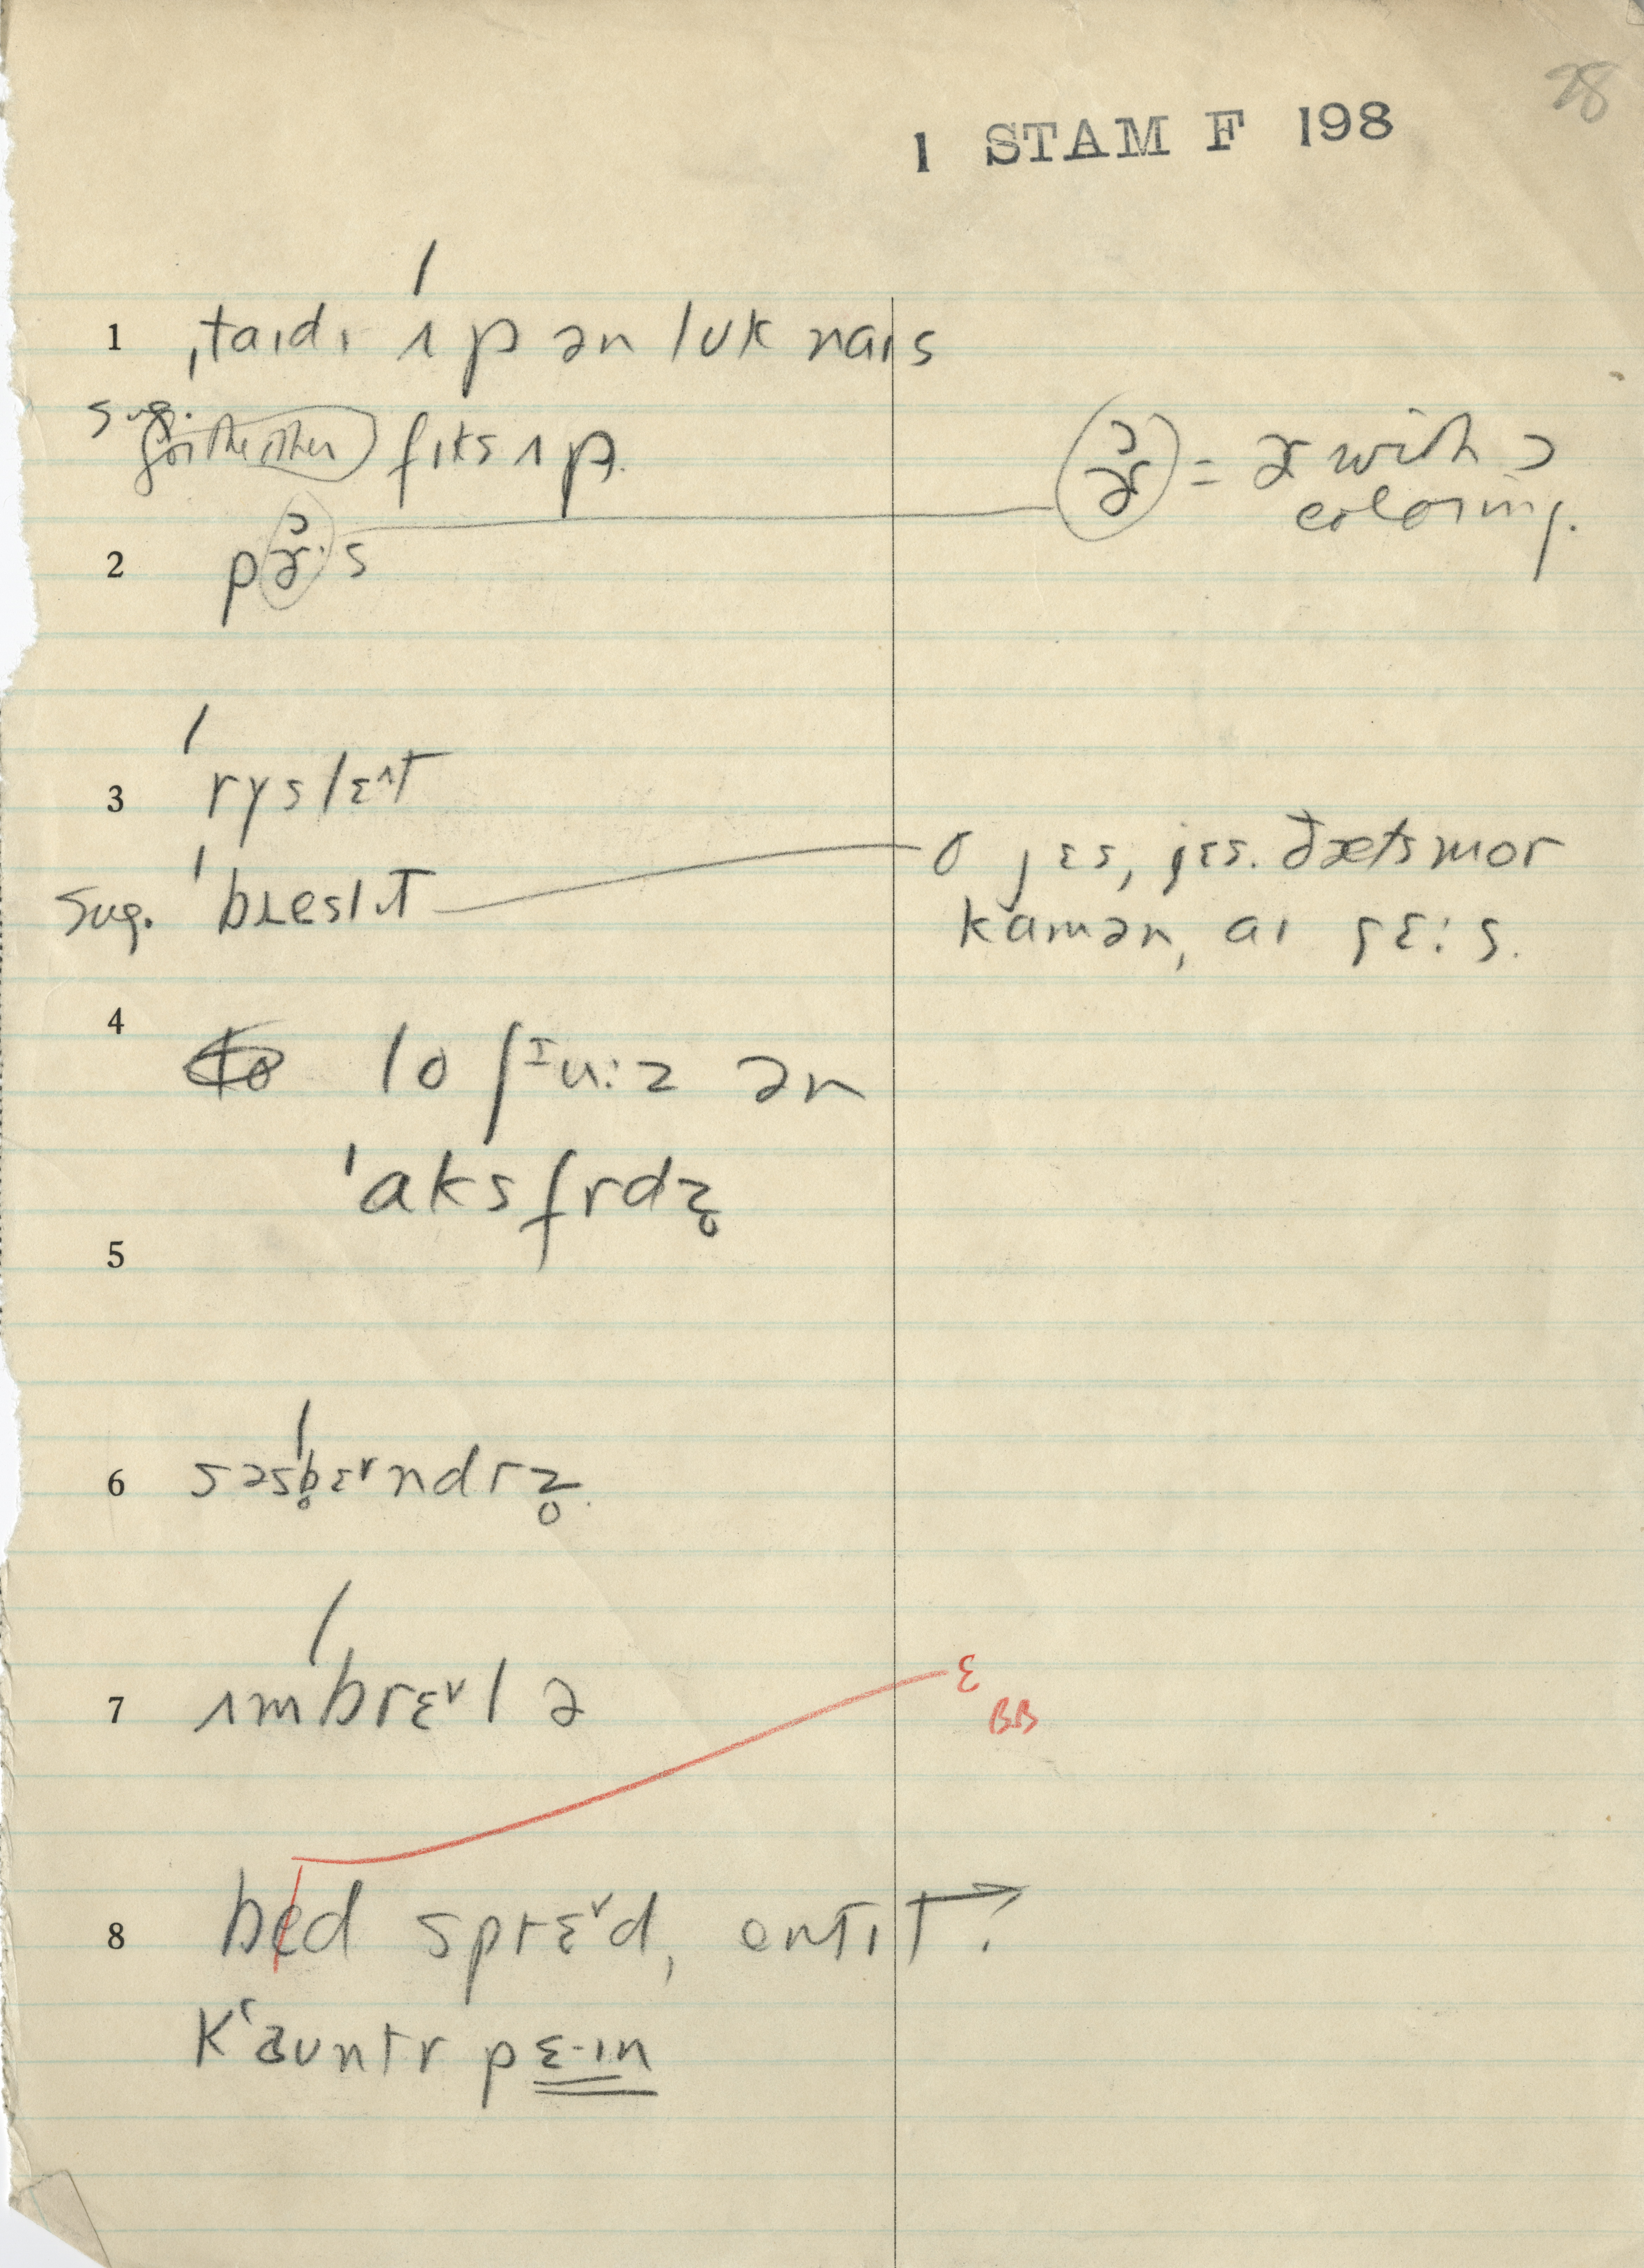 28
1 STAM F 198
1 ˌtaɪdɪ ˈʌp ən lʊk naɪs
sug. (for the other) fɪks ʌp.
ɚ̮ᵓ = ɚ with ɔ
coloring.
2 pɚᵓ·s
3 ˈrysleˆt
sug. ˈbɹeslɪt
o jɛs, jɛs. ðæts mor
kamən, aɪ gɛ:s.
4 lo ʃᴵu:z ən
ˈaksfrdz̥
5
6 səsˈb̥ɛ˅ndrz̥.
7 ʌmˈbrɛ˅lə
ɛ
BB
8 bed sprɛ˅d,
kʻaʊntr pɛ-ɪn